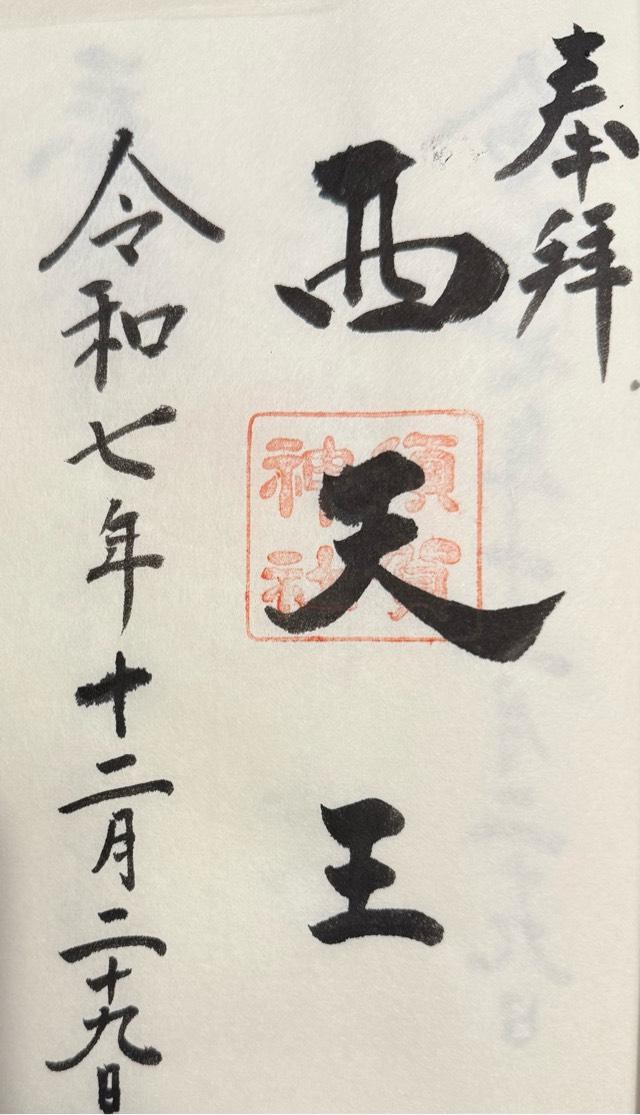 奉拝
西天王
須賀
神社
令和七年十二月二十九日